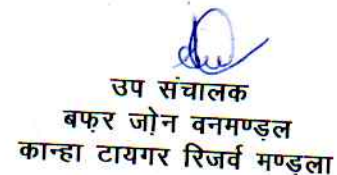 उप संचालक
बफर जोन वनमण्डल
कान्हा टायगर रिजर्व मण्डला